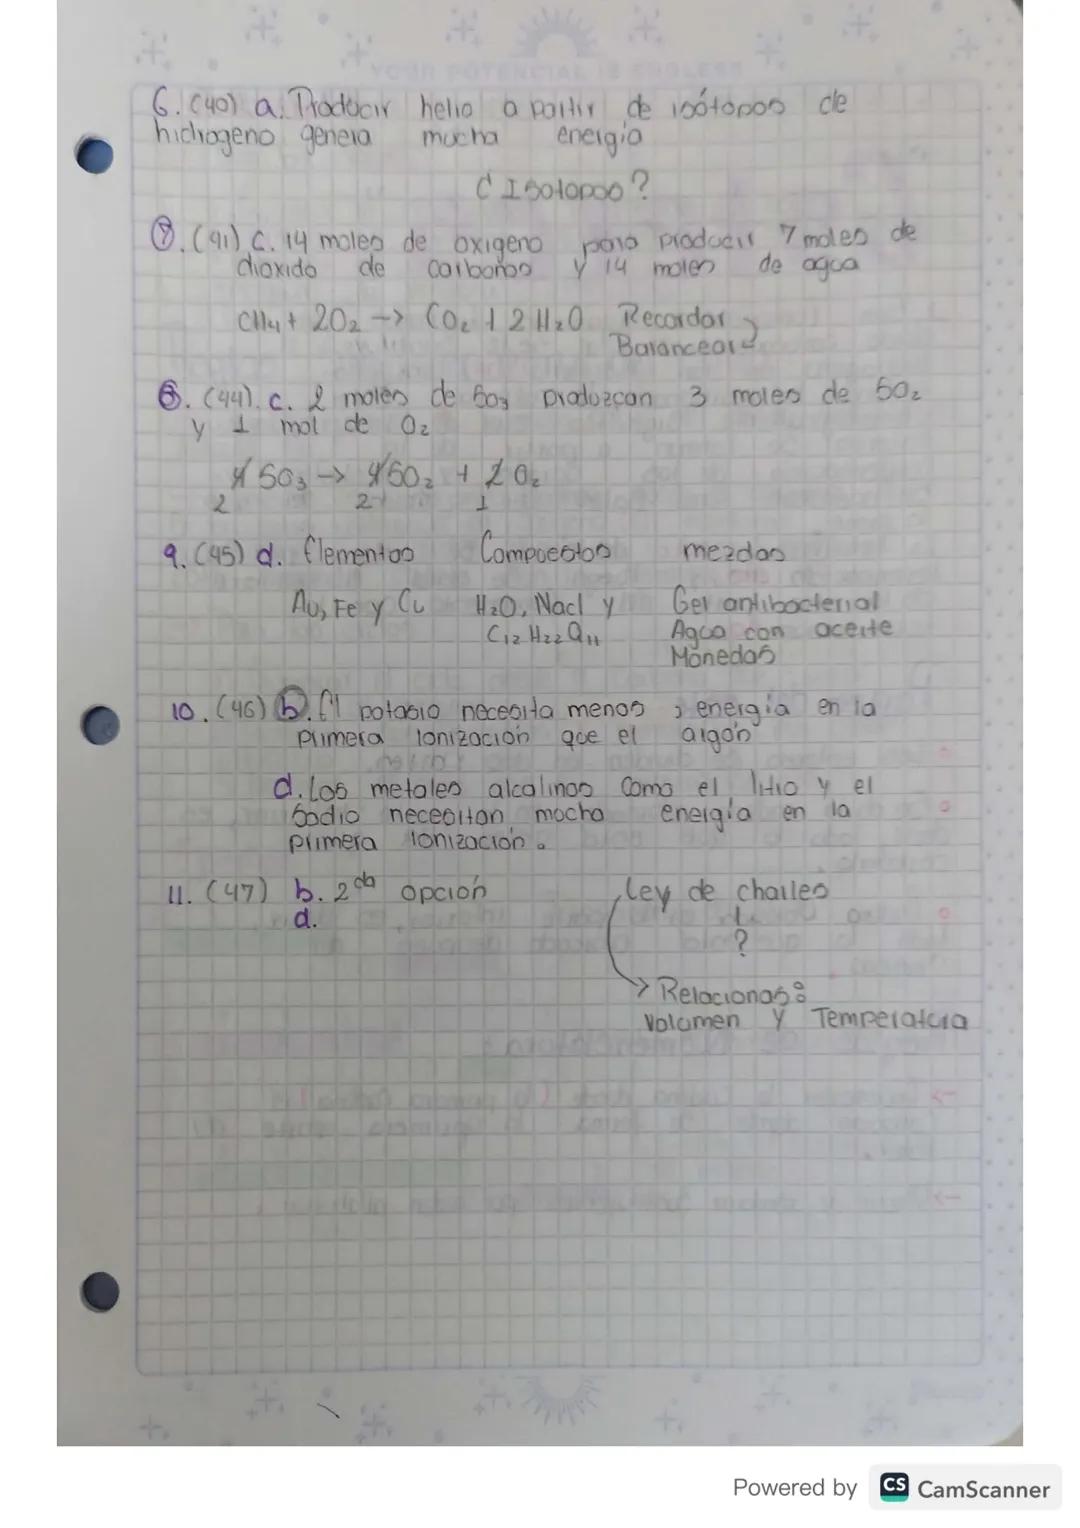 YOUR POTENCIAL IS ENDLESS
6. (40) a. Producir helio a partir de isótopos de
hidrogeno genera mucha energia
¿Isotopos?
7. (41) c. 14 moles de oxigeno para producir 7 moles de
dioxido de carbonos y 14 moles de agua
CH4 + 2O2 -> CO2 + 2H2O Recordar
Balancear
8. (44). c. 2 moles de SO3 produzcan 3 moles de SO2
y 1 mol de O2
4 SO3 -> 4 SO2 + 2 O2
2 2 1
9. (45) d. Elementos Compuestos mezclas
Au, Fe y Cu H2O, Nacl y Gel antibacterial
C12 H22 O11 Agua con aceite
Monedas
10. (46) b. El potasio necesita menos energía en la
primera ionización que el argón
d. Los metales alcalinos como el litio y el
Sodio necesitan mucha energía en la
primera ionización.
11. (47) b. 2da opción Ley de charles
d.
?
-> Relacionas:
Volumen y Temperatura
Powered by CS CamScanner